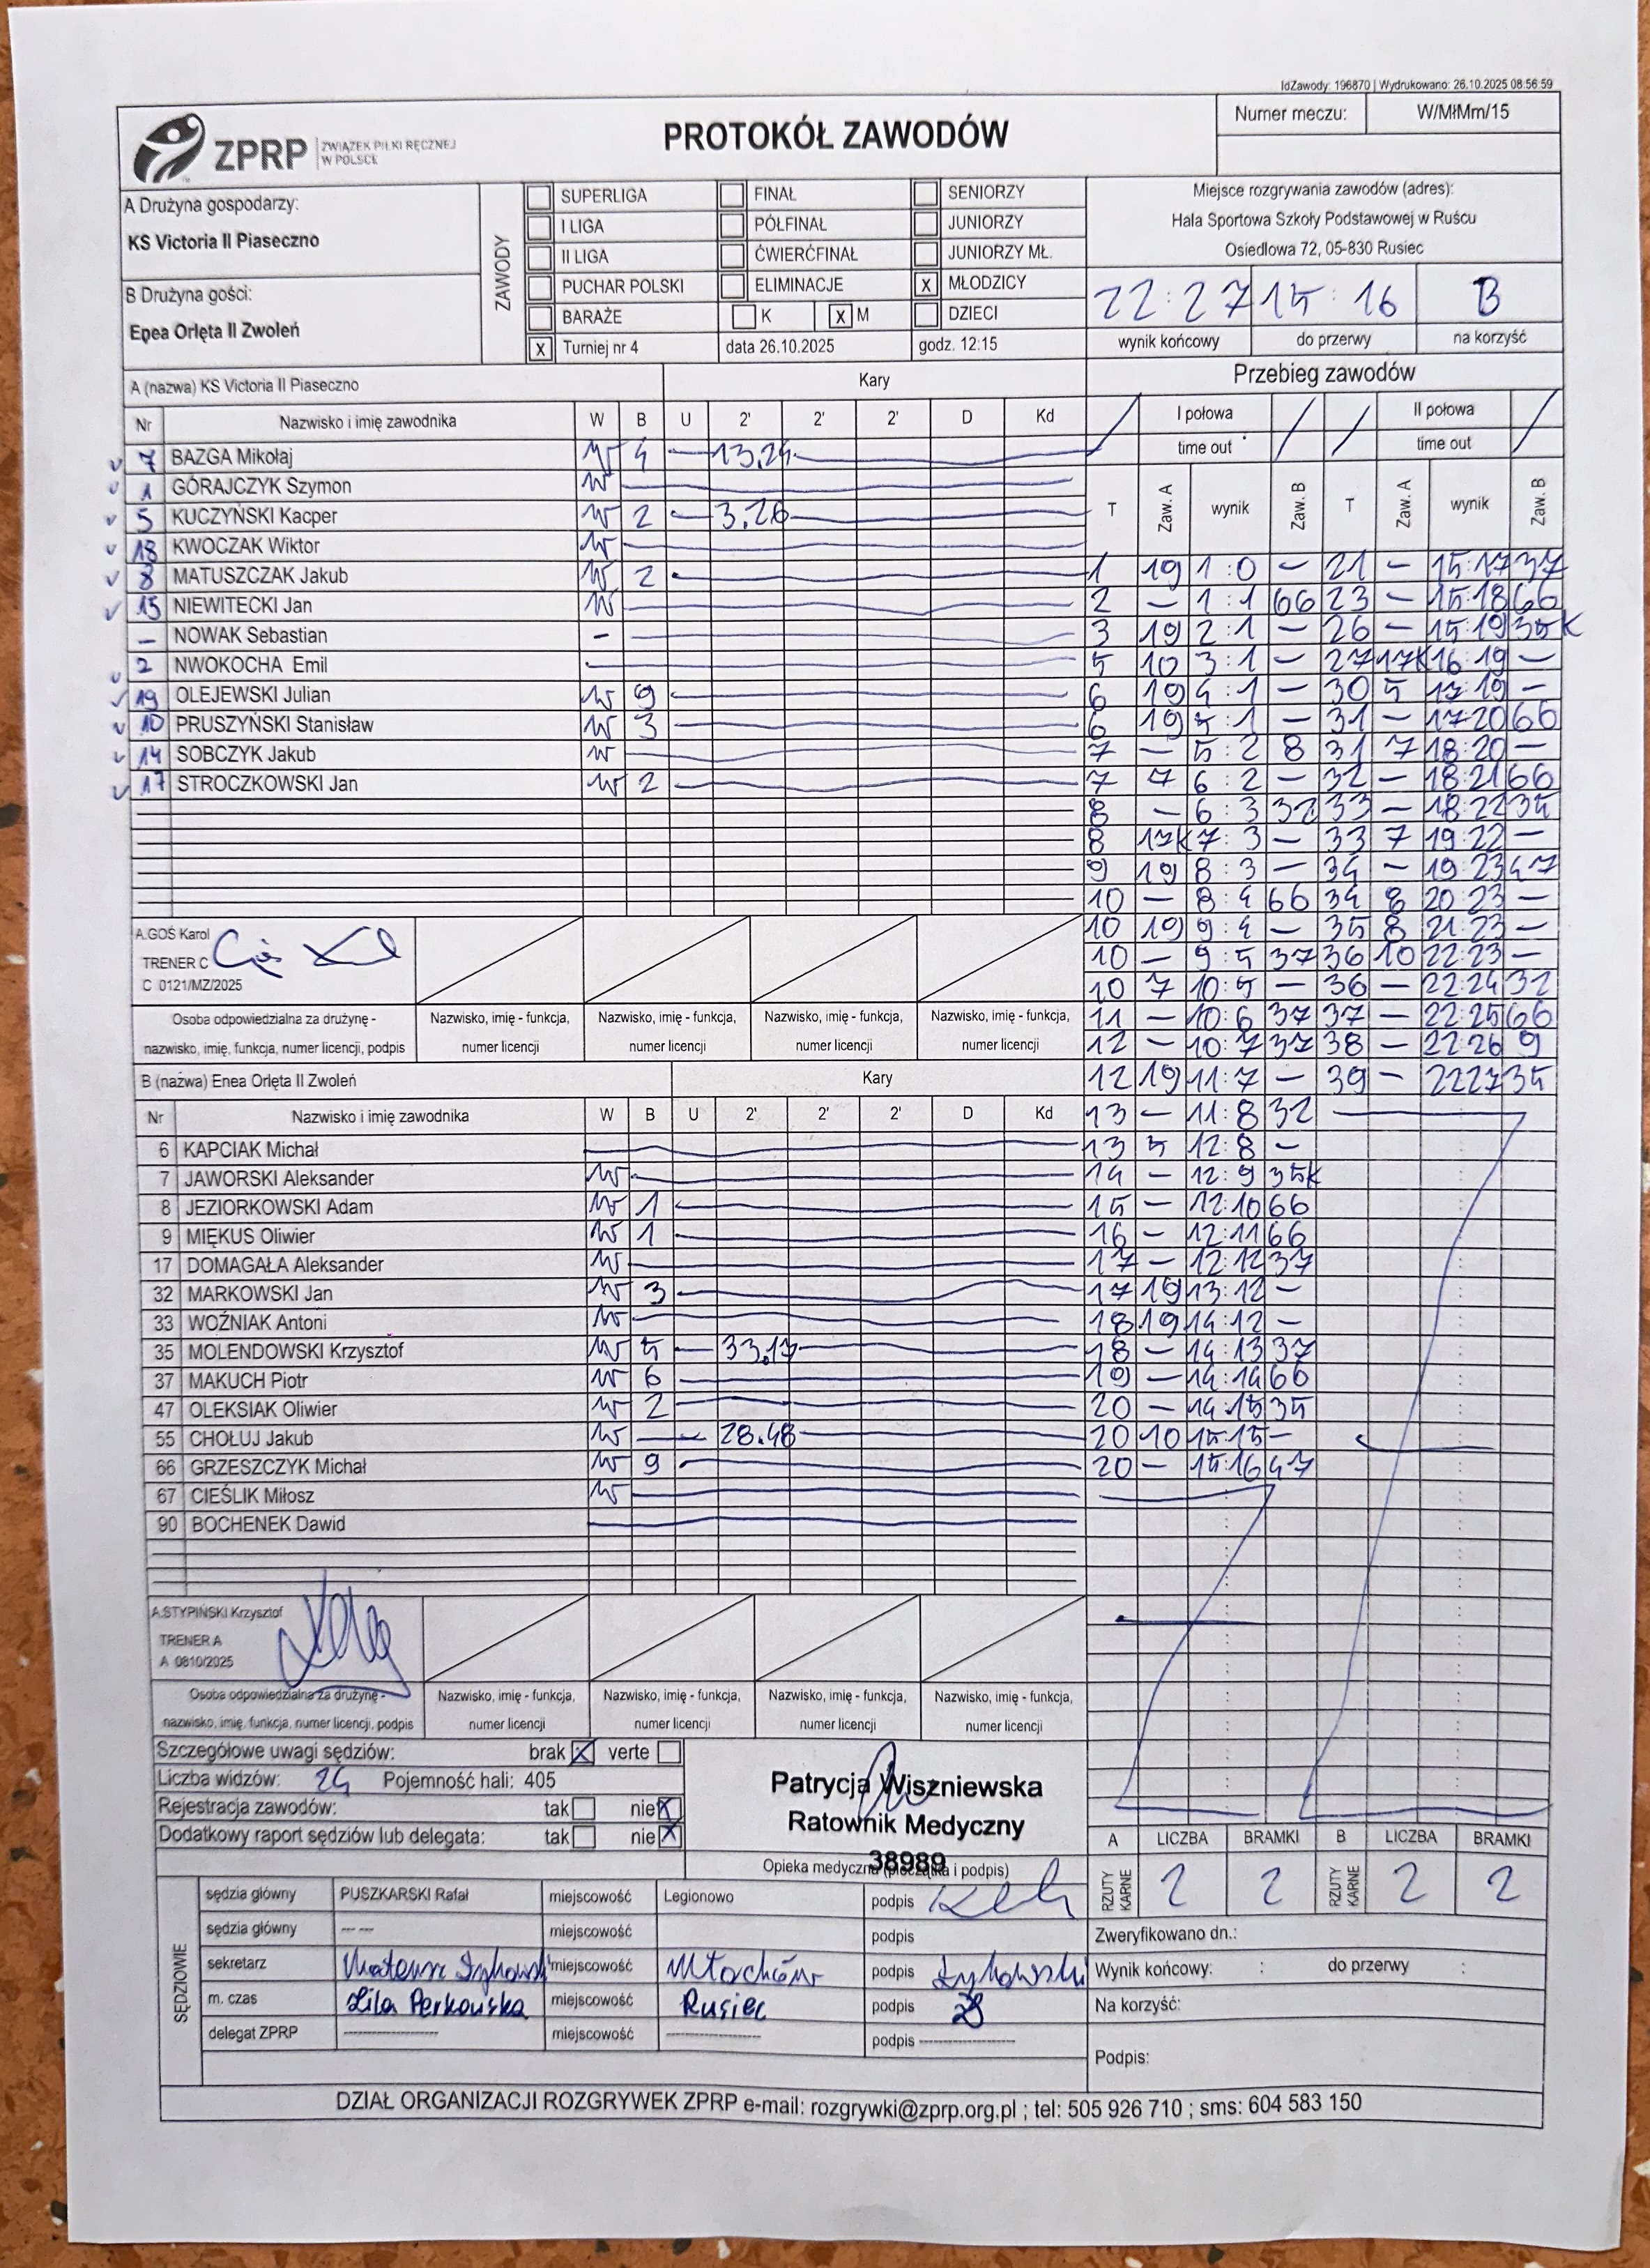 IdZawody: 196870 | Wydrukowano: 26.10.2025 08:56:59
ZPRP ZWIĄZEK PIŁKI RĘCZNEJ W POLSCE
PROTOKÓŁ ZAWODÓW
Numer meczu: W/MłMm/15
A Drużyna gospodarzy:
KS Victoria II Piaseczno
B Drużyna gości:
Enea Orlęta II Zwoleń
ZAWODY
SUPERLIGA FINAŁ SENIORZY
I LIGA PÓŁFINAŁ JUNIORZY
II LIGA ĆWIERĆFINAŁ JUNIORZY MŁ.
PUCHAR POLSKI ELIMINACJE X MŁODZICY
BARAŻE K X M DZIECI
X Turniej nr 4 data 26.10.2025 godz. 12:15
Miejsce rozgrywania zawodów (adres):
Hala Sportowa Szkoły Podstawowej w Ruścu
Osiedlowa 72, 05-830 Rusiec
22:27 15:16 B
wynik końcowy do przerwy na korzyść
A (nazwa) KS Victoria II Piaseczno Kary
Nr Nazwisko i imię zawodnika W B U 2' 2' 2' D Kd
7 BAZGA Mikołaj W 4 13.24
1 GÓRAJCZYK Szymon W
5 KUCZYŃSKI Kacper W 2 3.26
18 KWOCZAK Wiktor W
8 MATUSZCZAK Jakub W 2
15 NIEWITECKI Jan W
- NOWAK Sebastian -
2 NWOKOCHA Emil
19 OLEJEWSKI Julian W 9
10 PRUSZYŃSKI Stanisław W 3
14 SOBCZYK Jakub W
17 STROCZKOWSKI Jan W 2
A.GOŚ Karol
TRENER C
C 0121/MZ/2025
Osoba odpowiedzialna za drużynę - nazwisko, imię, funkcja, numer licencji, podpis
Nazwisko, imię - funkcja, numer licencji
Nazwisko, imię - funkcja, numer licencji
Nazwisko, imię - funkcja, numer licencji
Nazwisko, imię - funkcja, numer licencji
B (nazwa) Enea Orlęta II Zwoleń Kary
Nr Nazwisko i imię zawodnika W B U 2' 2' 2' D Kd
6 KAPCIAK Michał
7 JAWORSKI Aleksander W
8 JEZIORKOWSKI Adam W 1
9 MIĘKUS Oliwier W 1
17 DOMAGAŁA Aleksander W
32 MARKOWSKI Jan W 3
33 WOŹNIAK Antoni W
35 MOLENDOWSKI Krzysztof W 5 33.17
37 MAKUCH Piotr W 6
47 OLEKSIAK Oliwier W 2
55 CHOŁUJ Jakub W 28.48
66 GRZESZCZYK Michał W 9
67 CIEŚLIK Miłosz W
90 BOCHENEK Dawid
A.STYPIŃSKI Krzysztof
TRENER A
A 0810/2025
Osoba odpowiedzialna za drużynę - nazwisko, imię, funkcja, numer licencji, podpis
Nazwisko, imię - funkcja, numer licencji
Nazwisko, imię - funkcja, numer licencji
Nazwisko, imię - funkcja, numer licencji
Nazwisko, imię - funkcja, numer licencji
Przebieg zawodów
I połowa II połowa
time out time out
T Zaw. A wynik Zaw. B T Zaw. A wynik Zaw. B
1 19 1:0 - 21 - 15:17 37
2 - 1:1 66 23 - 15:18 66
3 19 2:1 - 26 - 15:19 35K
5 10 3:1 - 27 17K 16:19 -
6 19 4:1 - 30 5 17:19 -
6 19 5:1 - 31 - 17:20 66
7 - 5:2 8 31 7 18:20 -
7 7 6:2 - 32 - 18:21 66
8 - 6:3 32 33 - 18:22 35
8 17K 7:3 - 33 7 19:22 -
9 19 8:3 - 34 - 19:23 47
10 - 8:4 66 34 8 20:23 -
10 19 9:4 - 35 8 21:23 -
10 - 9:5 37 36 10 22:23 -
10 7 10:5 - 36 - 22:24 32
11 - 10:6 37 37 - 22:25 66
12 - 10:7 37 38 - 22:26 9
12 19 11:7 - 39 - 22:27 35
13 - 11:8 32
13 5 12:8 -
14 - 12:9 35K
15 - 12:10 66
16 - 12:11 66
17 - 12:12 37
17 19 13:12 -
18 19 14:12 -
18 - 14:13 37
19 - 14:14 66
20 - 14:15 35
20 10 15:15 -
20 - 15:16 47
Szczegółowe uwagi sędziów: brak X verte
Liczba widzów: 24 Pojemność hali: 405
Rejestracja zawodów: tak nie X
Dodatkowy raport sędziów lub delegata: tak nie X
Patrycja Wiszniewska
Ratownik Medyczny
38989
Opieka medyczna (pieczątka i podpis)
A LICZBA BRAMKI B LICZBA BRAMKI
RZUTY KARNE 2 2 RZUTY KARNE 2 2
SĘDZIOWIE
sędzia główny PUSZKARSKI Rafał miejscowość Legionowo podpis
sędzia główny --- --- miejscowość podpis
sekretarz Mateusz miejscowość Młochów podpis
m. czas Lila Perkowska miejscowość Rusiec podpis
delegat ZPRP ---------- miejscowość ---------- podpis ----------
Zweryfikowano dn.:
Wynik końcowy: : do przerwy :
Na korzyść:
Podpis:
DZIAŁ ORGANIZACJI ROZGRYWEK ZPRP e-mail: rozgrywki@zprp.org.pl ; tel: 505 926 710 ; sms: 604 583 150